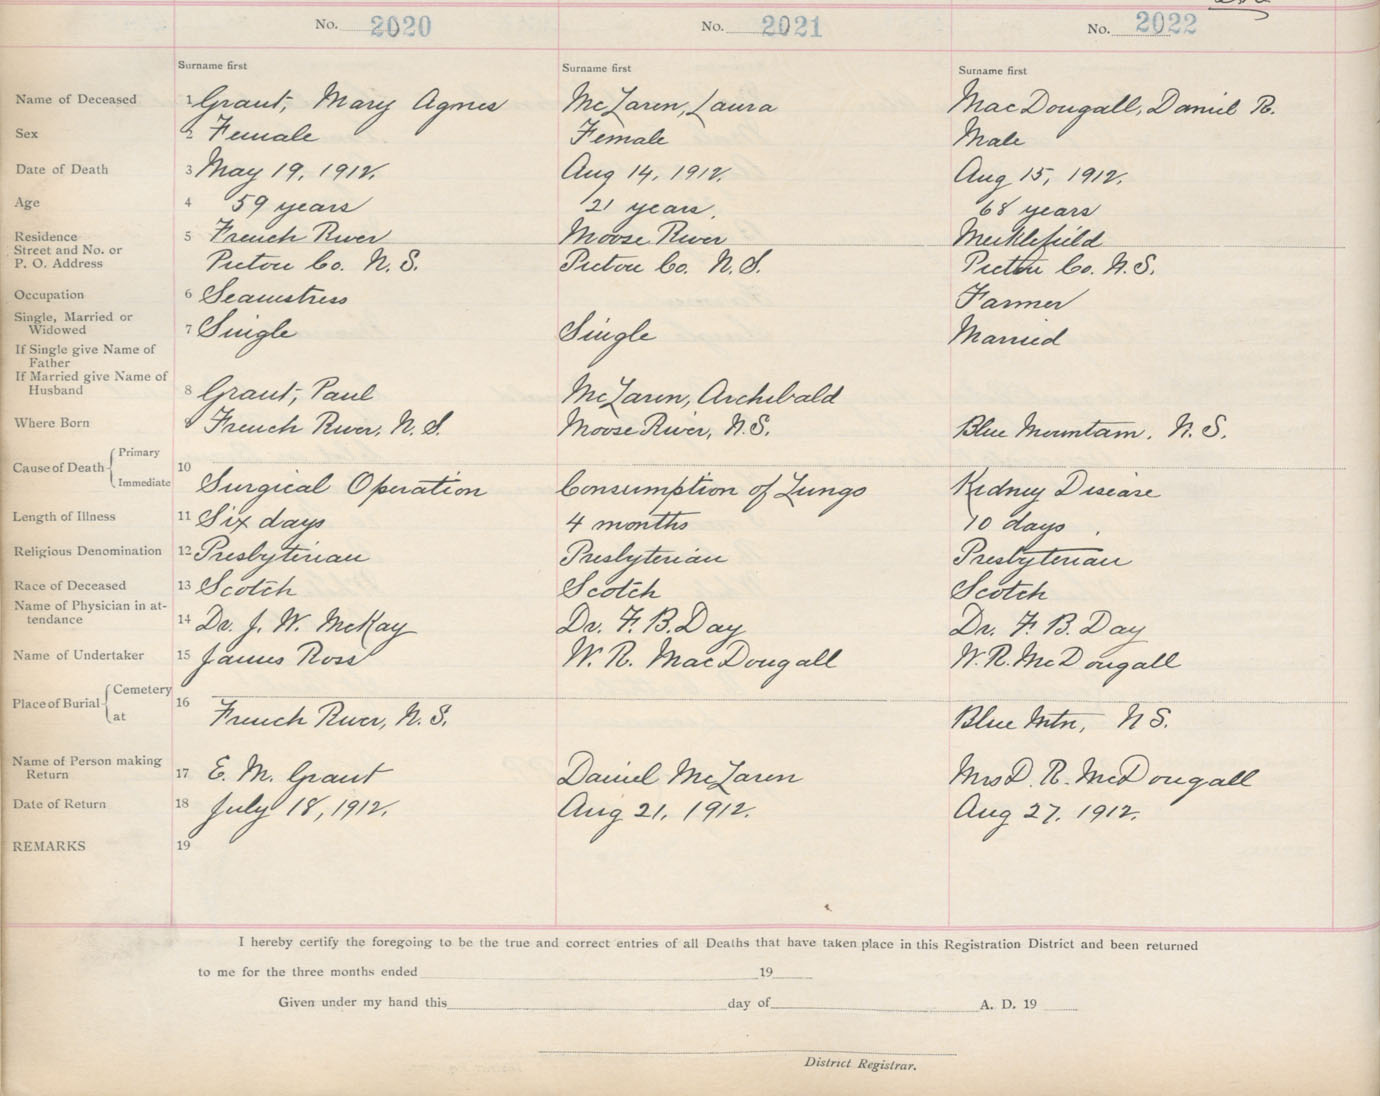 No. 2020 No. 2021 No. 2022
Surname first Surname first Surname first
Name of Deceased 1 Grant, Mary Agnes McLaren, Laura MacDougall, Daniel R.
Sex 2 Female Female Male
Date of Death 3 May 19, 1912. Aug 14, 1912. Aug 15, 1912.
Age 4 59 years 21 years. 68 years
Residence 5 French River Moose River Meiklefield
Street and No. or
P. O. Address Pictou Co. N. S. Pictou Co. N. S. Pictou Co. N. S.
Occupation 6 Seamstress Farmer
Single, Married or
Widowed 7 Single Single Married
If Single give Name of
Father
If Married give Name of
Husband 8 Grant, Paul McLaren, Archibald
Where Born 9 French River, N. S. Moose River, N. S. Blue Mountain. N. S.
Cause of Death Primary
10
Immediate Surgical Operation Consumption of Lungs Kidney Disease
Length of Illness 11 Six days 4 months 10 days
Religious Denomination 12 Presbyterian Presbyterian Presbyterian
Race of Deceased 13 Scotch Scotch Scotch
Name of Physician in at-
tendance 14 Dr. J. W. McKay Dr. F. B. Day Dr. F. B. Day
Name of Undertaker 15 James Ross W. R. MacDougall W. R. McDougall
Place of Burial Cemetery
16
at French River, N. S. Blue Mtn, N S.
Name of Person making
Return 17 E. M. Grant Daniel McLaren Mrs D. R. McDougall
Date of Return 18 July 18, 1912. Aug 21, 1912. Aug 27. 1912.
REMARKS 19
I hereby certify the foregoing to be the true and correct entries of all Deaths that have taken place in this Registration District and been returned
to me for the three months ended 19
Given under my hand this day of A. D. 19
District Registrar.